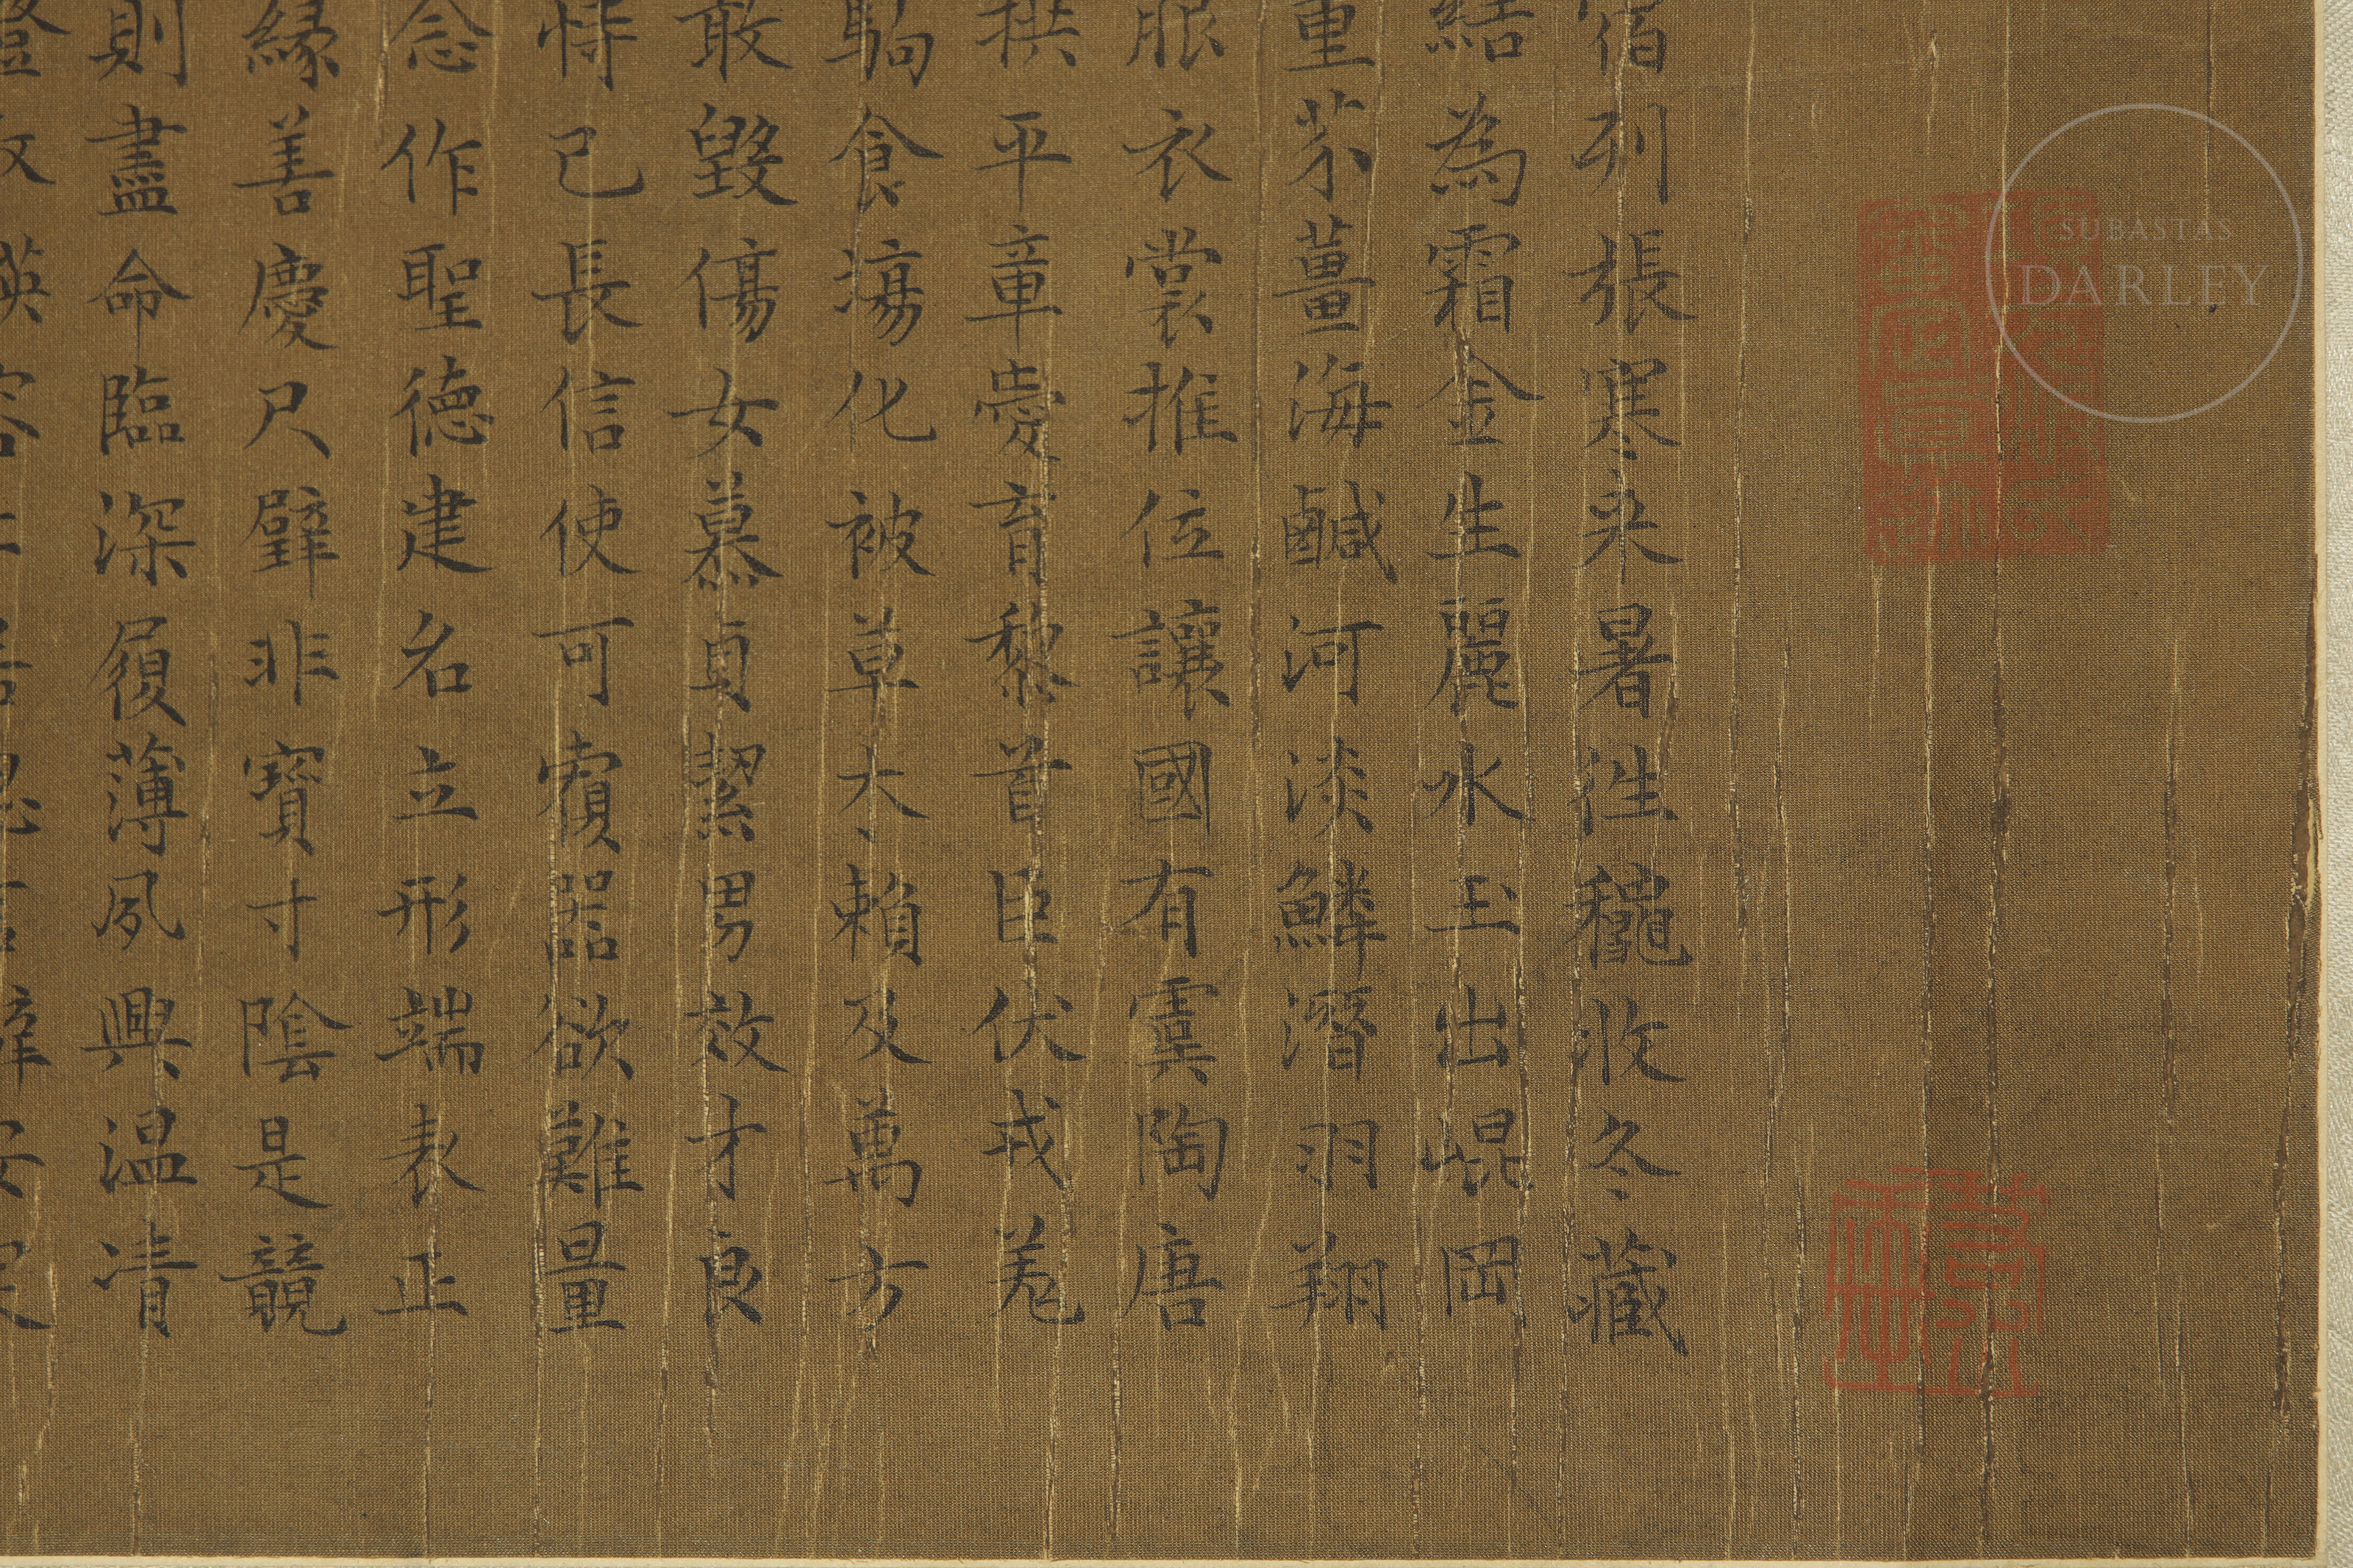 宿列張寒来暑往穐收冬藏
結為霜金生麗水玉出崐岡
重芥薑海鹹河淡鱗潛羽翔
服衣裳推位讓國有虞陶唐
拱平章愛育黎首臣伏戎羌
駒食場化被草木賴及萬方
敢毀傷女慕貞絜男效才良
恃己長信使可覆器欲難量
念作聖德建名立形端表正
緣善慶尺璧非寶寸陰是競
則盡命臨深履薄夙興溫凊
SUBASTAS
DARLEY